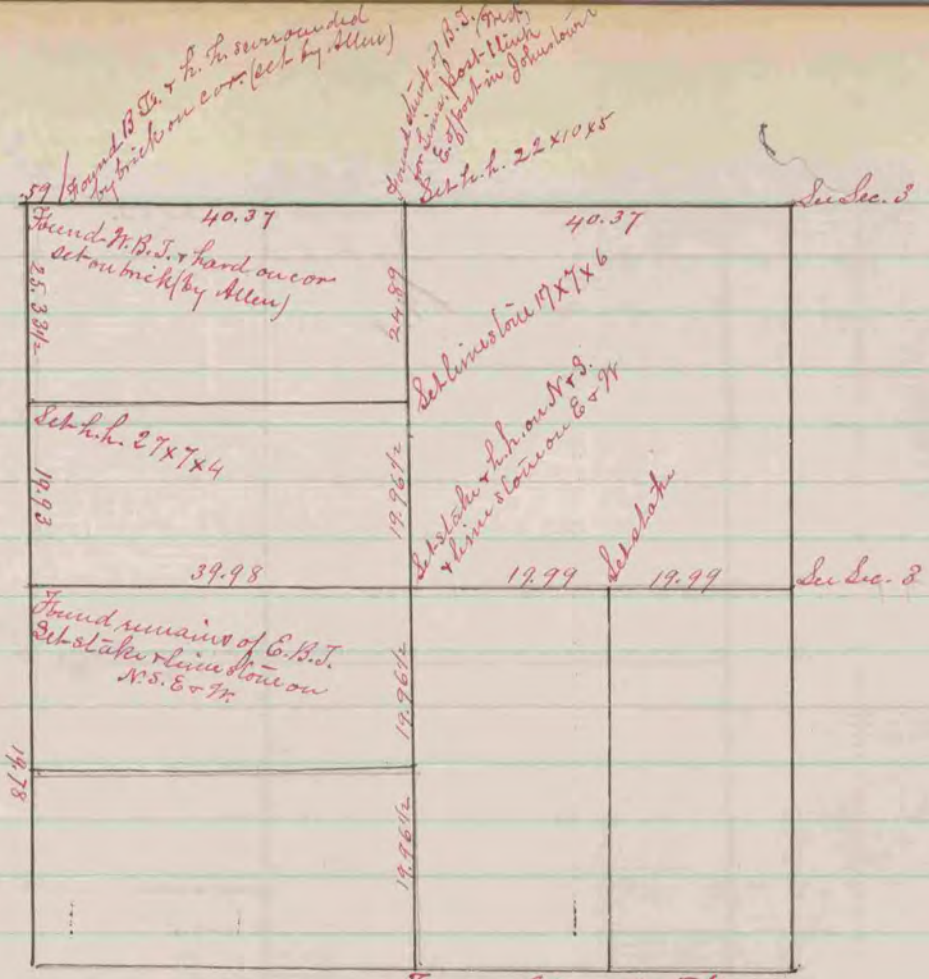 Found B.Ts. & h.h. surrounded
by brick on cor. (set by Allen)
Found stump of B.T. West,
E. of post in Johnstown
Set h.h. 22x10x5
.59
40.37
40.37
See Sec. 3
Found W.B.T. & hard on cor
set on brick (by Allen)
25.33 1/2
24.89
Set limestone 17x7x6
Set h.h. 27x7x4
19.93
19.96 1/2
Set stake & h.h. on N & S.
& lime stone on E & W
Set stake
39.98
19.99
19.99
See Sec. 3
Found remains of E.B.T.
Set stake & lime stone on
N. S. E & W.
19.96 1/2
19.78
19.96 1/2